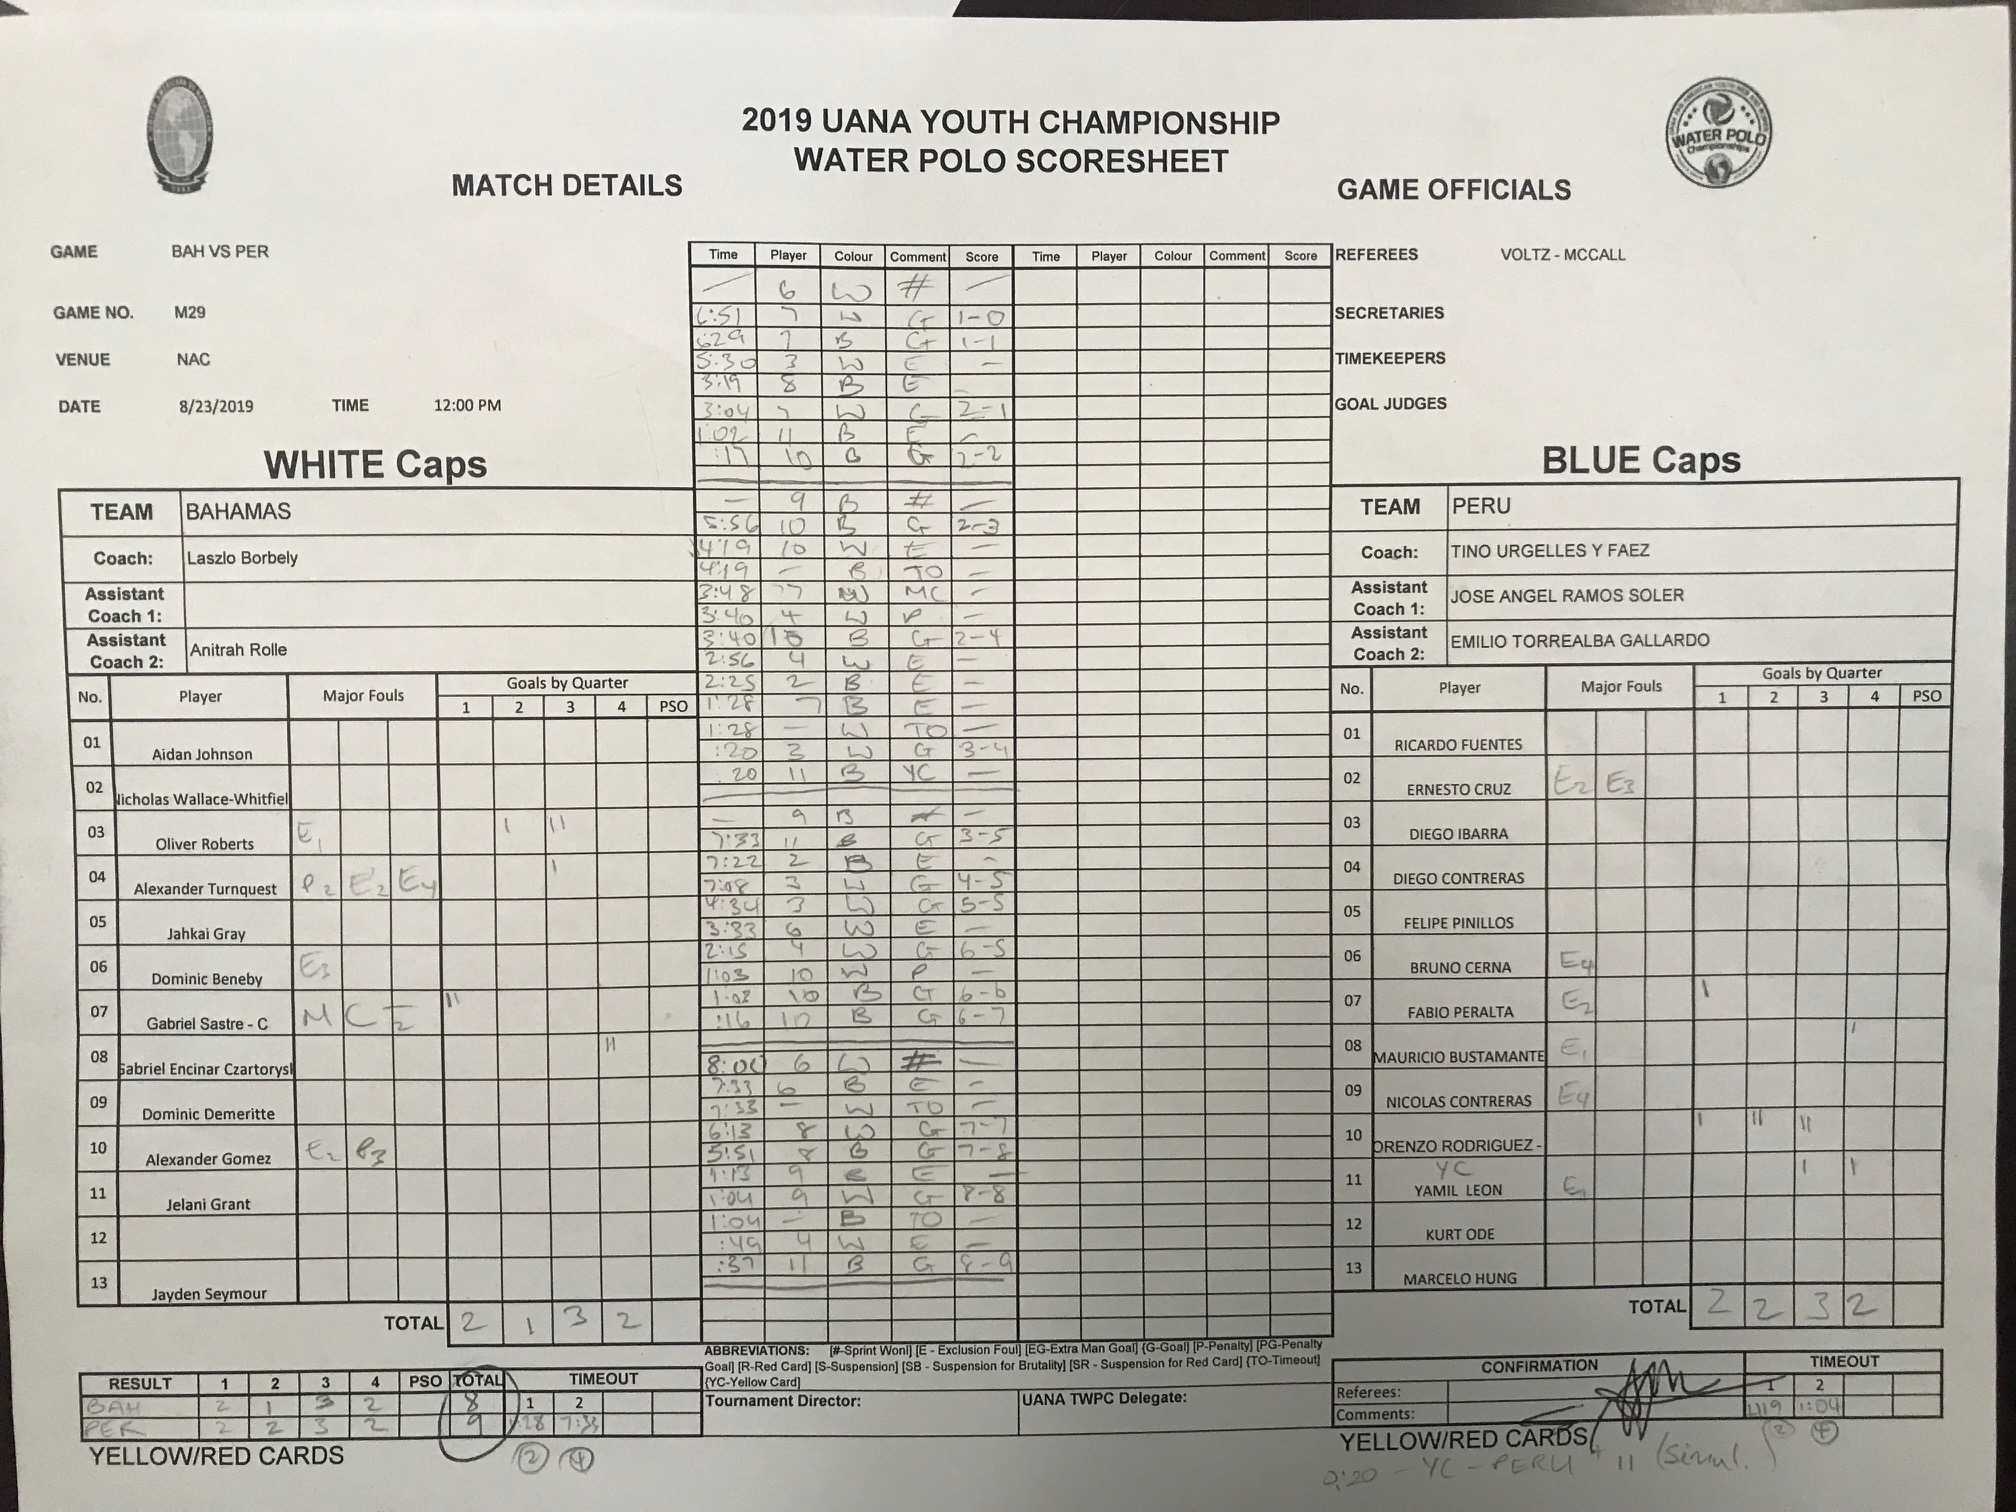 2019 UANA YOUTH CHAMPIONSHIP
WATER POLO SCORESHEET
WATER POLO
Championships
MATCH DETAILS
GAME OFFICIALS
GAME BAH VS PER
GAME NO. M29
VENUE NAC
DATE 8/23/2019 TIME 12:00 PM
REFEREES VOLTZ - MCCALL
SECRETARIES
TIMEKEEPERS
GOAL JUDGES
WHITE Caps
TEAM BAHAMAS
Coach: Laszlo Borbely
Assistant Coach 1:
Assistant Coach 2: Anitrah Rolle
No. Player Major Fouls Goals by Quarter
1 2 3 4 PSO
01 Aidan Johnson
02 Nicholas Wallace-Whitfiel
03 Oliver Roberts E1 I II
04 Alexander Turnquest P2 E2 E4 I
05 Jahkai Gray
06 Dominic Beneby E3
07 Gabriel Sastre - C M C 2 II
08 Gabriel Encinar Czartorysk II
09 Dominic Demeritte
10 Alexander Gomez E2 P3
11 Jelani Grant
12
13 Jayden Seymour
TOTAL 2 1 3 2
RESULT 1 2 3 4 PSO TOTAL TIMEOUT
1 2
BAH 2 1 3 2 8
PER 2 2 3 2 9 1:28 7:33
YELLOW/RED CARDS 2 4
Time Player Colour Comment Score Time Player Colour Comment Score
— 6 W # —
6:51 7 W G 1-0
6:29 7 B G 1-1
5:30 3 W E —
3:19 8 B E
3:04 7 W G 2-1
1:02 11 B E —
:17 10 B G 2-2
— 9 B # —
5:56 10 B G 2-3
4:19 10 W E —
4:19 — B TO —
3:48 7 W MC —
3:40 4 W P —
3:40 10 B G 2-4
2:56 4 W E —
2:25 2 B E —
1:28 7 B E —
1:28 — W TO —
:20 3 W G 3-4
:20 11 B YC —
— 9 B # —
7:33 11 B G 3-5
7:22 2 B E -
7:08 3 W G 4-5
4:34 3 W G 5-5
3:33 6 W E —
2:15 4 W G 6-5
1:03 10 W P —
1:03 10 B G 6-6
:16 10 B G 6-7
8:00 6 W # —
7:33 6 B E -
7:33 — W TO —
6:13 8 W G 7-7
5:51 8 B G 7-8
1:13 9 B E —
1:04 9 W G 8-8
1:04 — B TO —
:49 4 W E —
:37 11 B G 8-9
ABBREVIATIONS: [#-Sprint Won] [E - Exclusion Foul] [EG-Extra Man Goal] {G-Goal] [P-Penalty] [PG-Penalty
Goal] [R-Red Card] [S-Suspension] [SB - Suspension for Brutality] [SR - Suspension for Red Card] {TO-Timeout]
{YC-Yellow Card]
Tournament Director: UANA TWPC Delegate:
BLUE Caps
TEAM PERU
Coach: TINO URGELLES Y FAEZ
Assistant Coach 1: JOSE ANGEL RAMOS SOLER
Assistant Coach 2: EMILIO TORREALBA GALLARDO
No. Player Major Fouls Goals by Quarter
1 2 3 4 PSO
01 RICARDO FUENTES
02 ERNESTO CRUZ E2 E3
03 DIEGO IBARRA
04 DIEGO CONTRERAS
05 FELIPE PINILLOS
06 BRUNO CERNA E4
07 FABIO PERALTA E2 I
08 MAURICIO BUSTAMANTE E1 I
09 NICOLAS CONTRERAS E4
10 ORENZO RODRIGUEZ - I II II
11 YC YAMIL LEON E1 I I
12 KURT ODE
13 MARCELO HUNG
TOTAL 2 2 3 2
CONFIRMATION TIMEOUT
Referees: 1 2
Comments: 4:19 1:04
YELLOW/RED CARDS 2 4
0:20 - YC - PERU # 11 (Simul.)